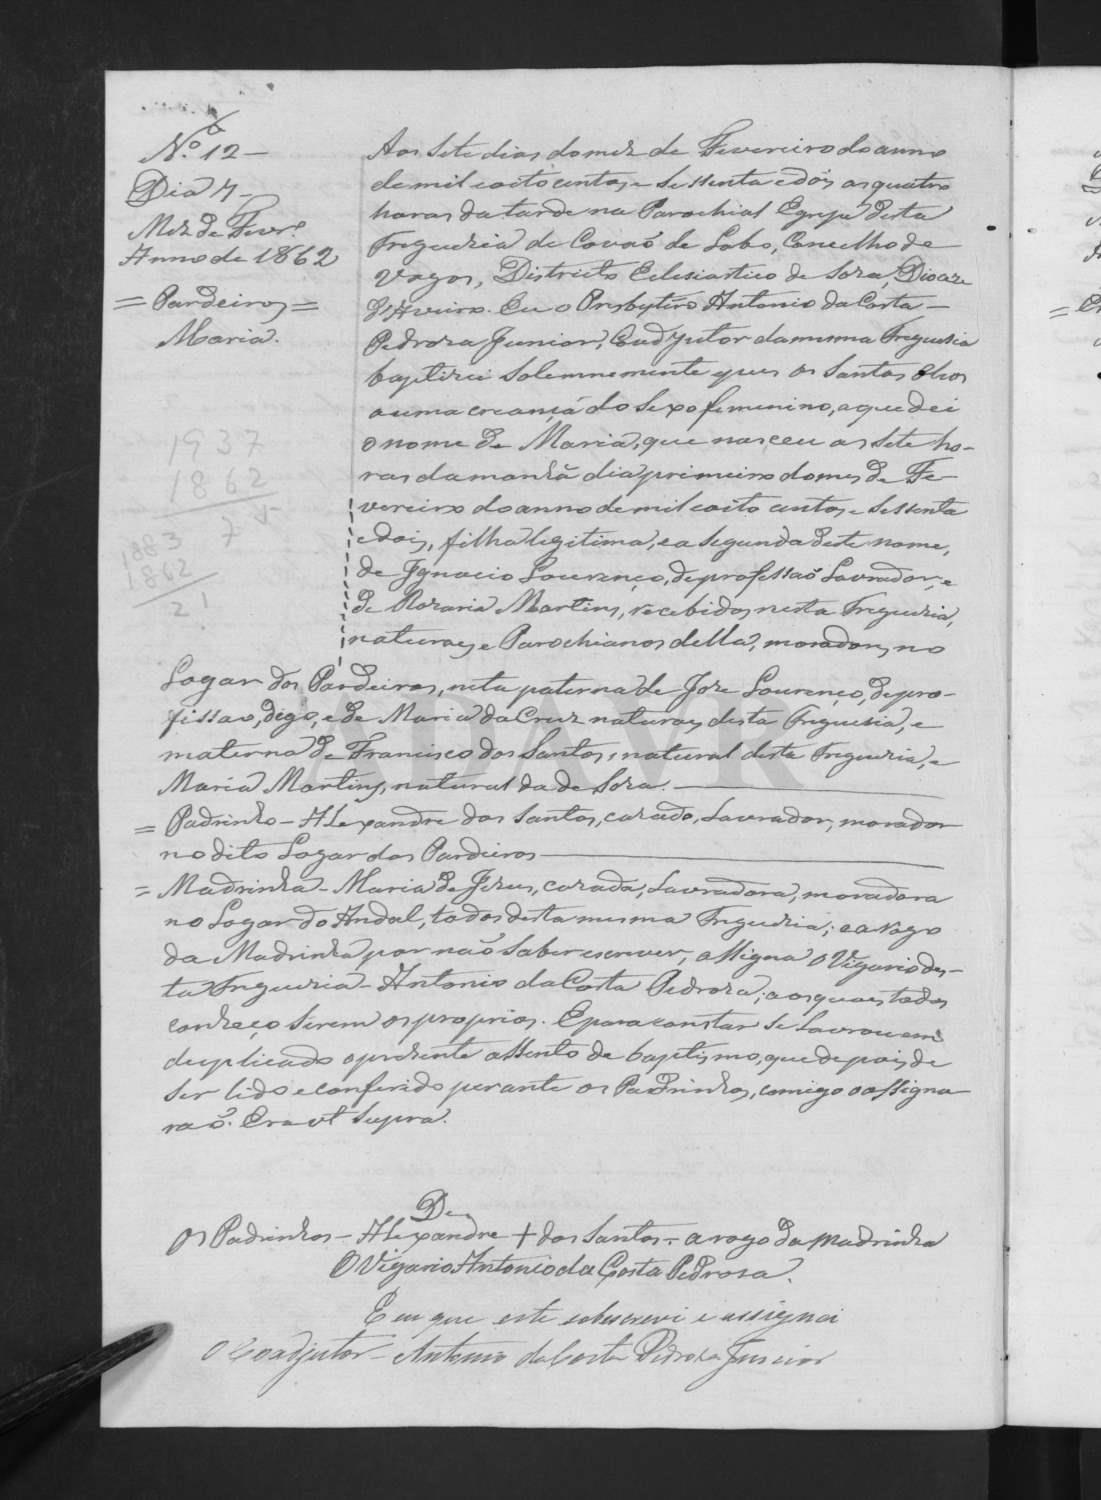 N.º 12 –
Dia 7 –
Mez de Fevr.º
Anno de 1862
= Pardeiros =
Maria.
1937
1862
7
1883
1862
21
Aos sete dias do mez de Fevereiro do anno
de mil e oito centos e sessenta e dois as quatro
horas da tarde na Parochial Egreja desta
Freguezia de Covaõ de Lobo, Concelho de
Vagos, Districto Eclesiastico de Soza, Diocese
d'Aveiro. Eu o Presbytero Antonio da Costa –
Pedroza Junior, Coadjutor da mesma Freguesia
baptizei solemnemente e puz os Santos Oleos
a uma creança do sexo femenino, a que dei
o nome de Maria, que nasceu as sete ho-
ras da manhã dia primeiro do mes de Fe-
vereiro do anno de mil e oito centos e sessenta
e dois, filha legitima, e a segunda deste nome,
de Ignacio Lourenço, de profissaõ Lavrador, e
de Rozaria Martins, recebidos nesta Freguezia,
naturaes e Parochianos della, moradores no
Logar dos Pardeiros, neta paterna de Joze Lourenço, de pro-
fissao, digo, e de Maria da Cruz naturaes desta Freguesia, e
materna de Francisco dos Santos, natural desta Freguezia, e
Maria Martins, natural da de Soza.
= Padrinho – Alexandre dos Santos, cazado, Lavrador, morador
no dito Logar dos Pardeiros
= Madrinha – Maria de Jezus, cazada, Lavradora, moradora
no Logar do Andal, todos desta mesma Freguezia; e a rogo
da Madrinha por naõ saber escrever, assigna o Vigario des-
ta Freguezia – Antonio da Costa Pedroza; aos quaes todos
conheço serem os proprios. E para constar se lavrou em
duplicado o presente assento de baptismo, que depois de
ser lido e conferido perante os Padrinhos, comigo o assigna-
raõ. Era ut supra.
De
Os Padrinhos – Alexandre + dos Santos – a rogo da Madrinha
O Vigario Antonio da Costa Pedroza.
E eu que este sobescrevi e assignei
O Coadjutor – Antonio da Costa Pedroza Junior
ADAVR